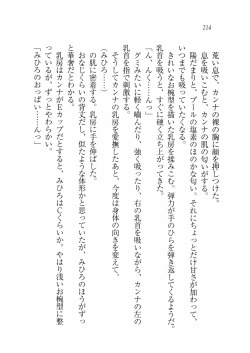 214
荒い息で、カンナの裸の胸に顔を押しつけた。
息を吸いこむと、カンナの肌の匂いがする。
陽だまりと、プールの塩素のほのかな匂い。それにちょっとだけ甘さが加わって、
いつまでも吸っていたくなる。
きれいなお椀型を描いた乳房を揉みこむ。弾力が手のひらを弾き返してくるようだ。
乳首を吸うと、すぐに硬く立ち上がってきた。
「ん、んく……んっ」
グミみたいに軽く噛んだり、強く吸ったり、右の乳首を吸いながら、カンナの左の
乳首を指で刺激する。
そうしてカンナの乳房を愛撫したあと、今度は身体の向きを変えて、
（みひろ……）
の肌に密着する。乳房に手を伸ばした。
おなじくらいの背丈だし、似たような体形かと思っていたが、みひろのほうがずっ
と華奢だとわかる。
乳房はカンナがEカップだとすると、みひろはCくらいか、やはり浅いお椀型に整
っているが、ずっとやわらかい。
「みひろのおっぱい……んっ」